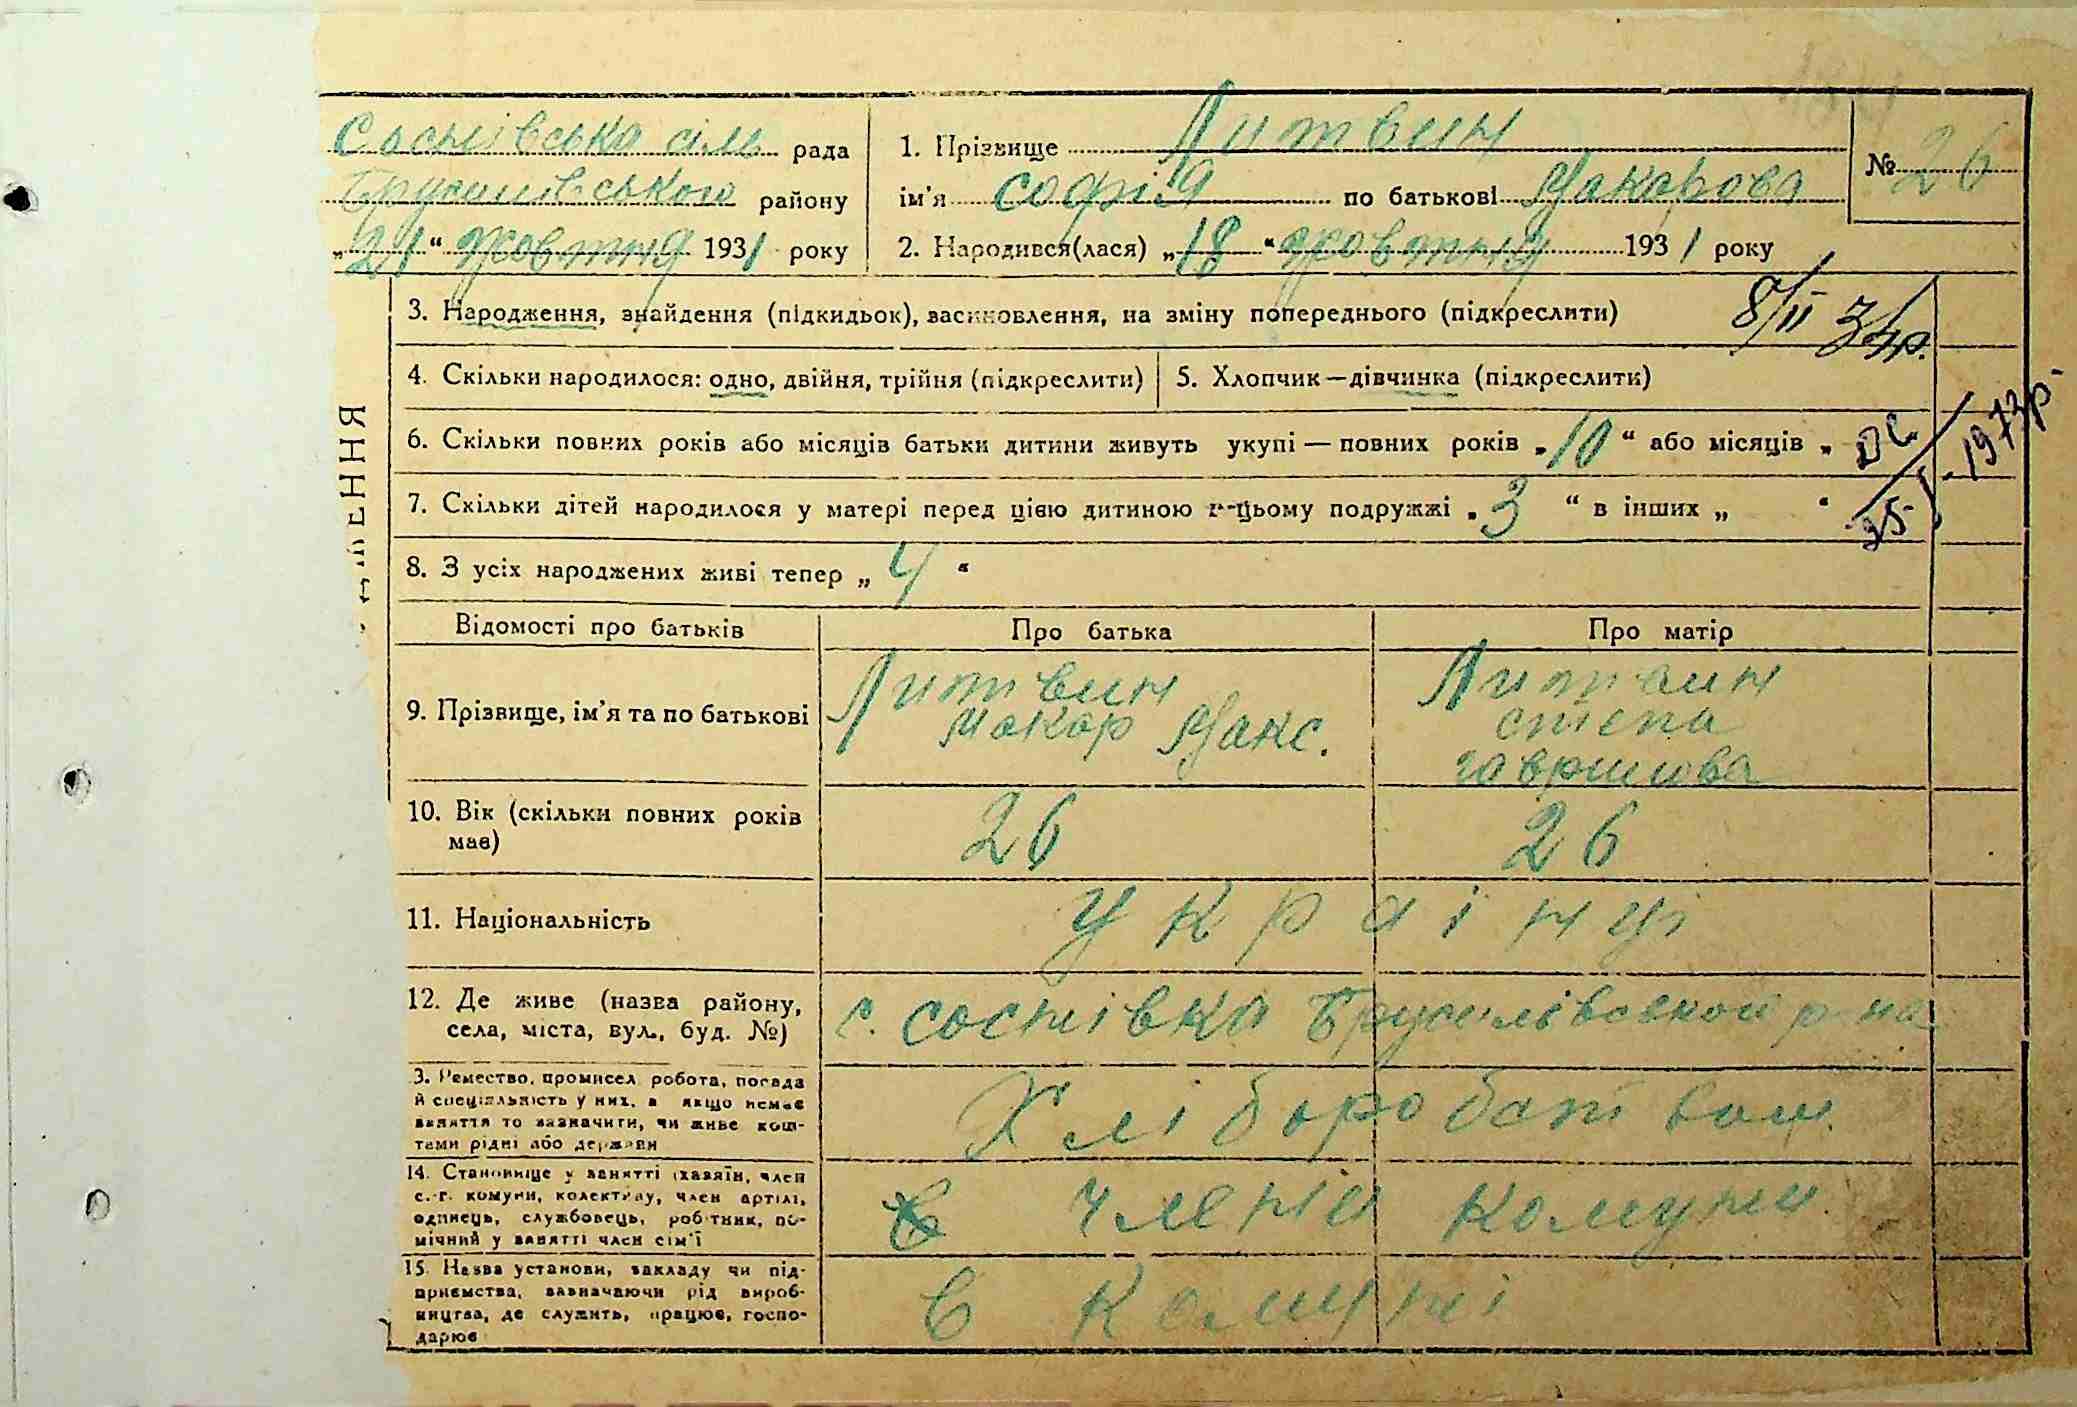 Соснівська сіль рада
Брусилівського району
„21“ жовтня 1931 року
1. Прізвище Литвин
ім'я Софія по батькові Макарова
№ 26
2. Народився(лася) „18“ жовтня 1931 року
3. Народження, знайдення (підкидьок), васиновлення, на зміну попереднього (підкреслити)
8/II 34р.
4. Скільки народилося: одно, двійня, трійня (підкреслити) 5. Хлопчик—дівчинка (підкреслити)
6. Скільки повних років або місяців батьки дитини живуть укупі — повних років „10“ або місяців „
1973р.
7. Скільки дітей народилося у матері перед цією дитиною в цьому подружжі „3“ в інших „ “
8. З усіх народжених живі тепер „4“
ЕННЯ
Відомості про батьків Про батька Про матір
9. Прізвище, ім'я та по батькові
Литвин
Макар Макс.
Литвин
степа
гаврилова
10. Вік (скільки повних років
має)
26 26
11. Національність
українці
12. Де живе (назва району,
села, міста, вул., буд. №)
с. соснівка Брусилівської р-на
3. Ремество, промисел, робота, посада
й спеціяльність у них, а якщо немає
заняття то зазначити, чи живе кош-
тами рідні або держави
Хліборобством.
14. Становище у занятті (хазяїн, член
с.-г. комуни, колективу, член артілі,
одинець, службовець, робітник, по-
мічний у занятті член сім'ї
члени комуни
15. Назва установи, закладу чи під-
приємства, зазначаючи рід вироб-
ництва, де служить, працює, госпо-
дарює
в комуні